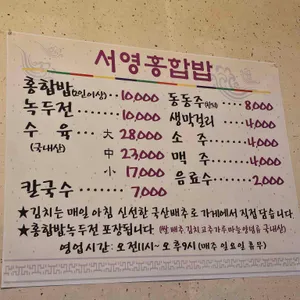 서영홍합밥
홍합밥(2인이상) ‥‥ 10,000
녹두전 ‥‥‥‥ 10,000
수육 大 28,000
(국내산) 中 23,000
小 17,000
칼국수 ‥‥‥ 7,000
동동주 ‥‥ 8,000
생막걸리 ‥‥ 4,000
소주 ‥‥‥ 4,000
맥주 ‥‥‥ 4,000
음료수 ‥‥‥ 2,000
★김치는 매일 아침 신선한 국산배추로 가게에서 직접 담습니다
★홍합밥녹두전 포장됩니다 (쌀.배추.김치고추가루마늘양념류 국내산)
영업시간: 오전11시~ 오후9시 (매주 일요일 휴무)